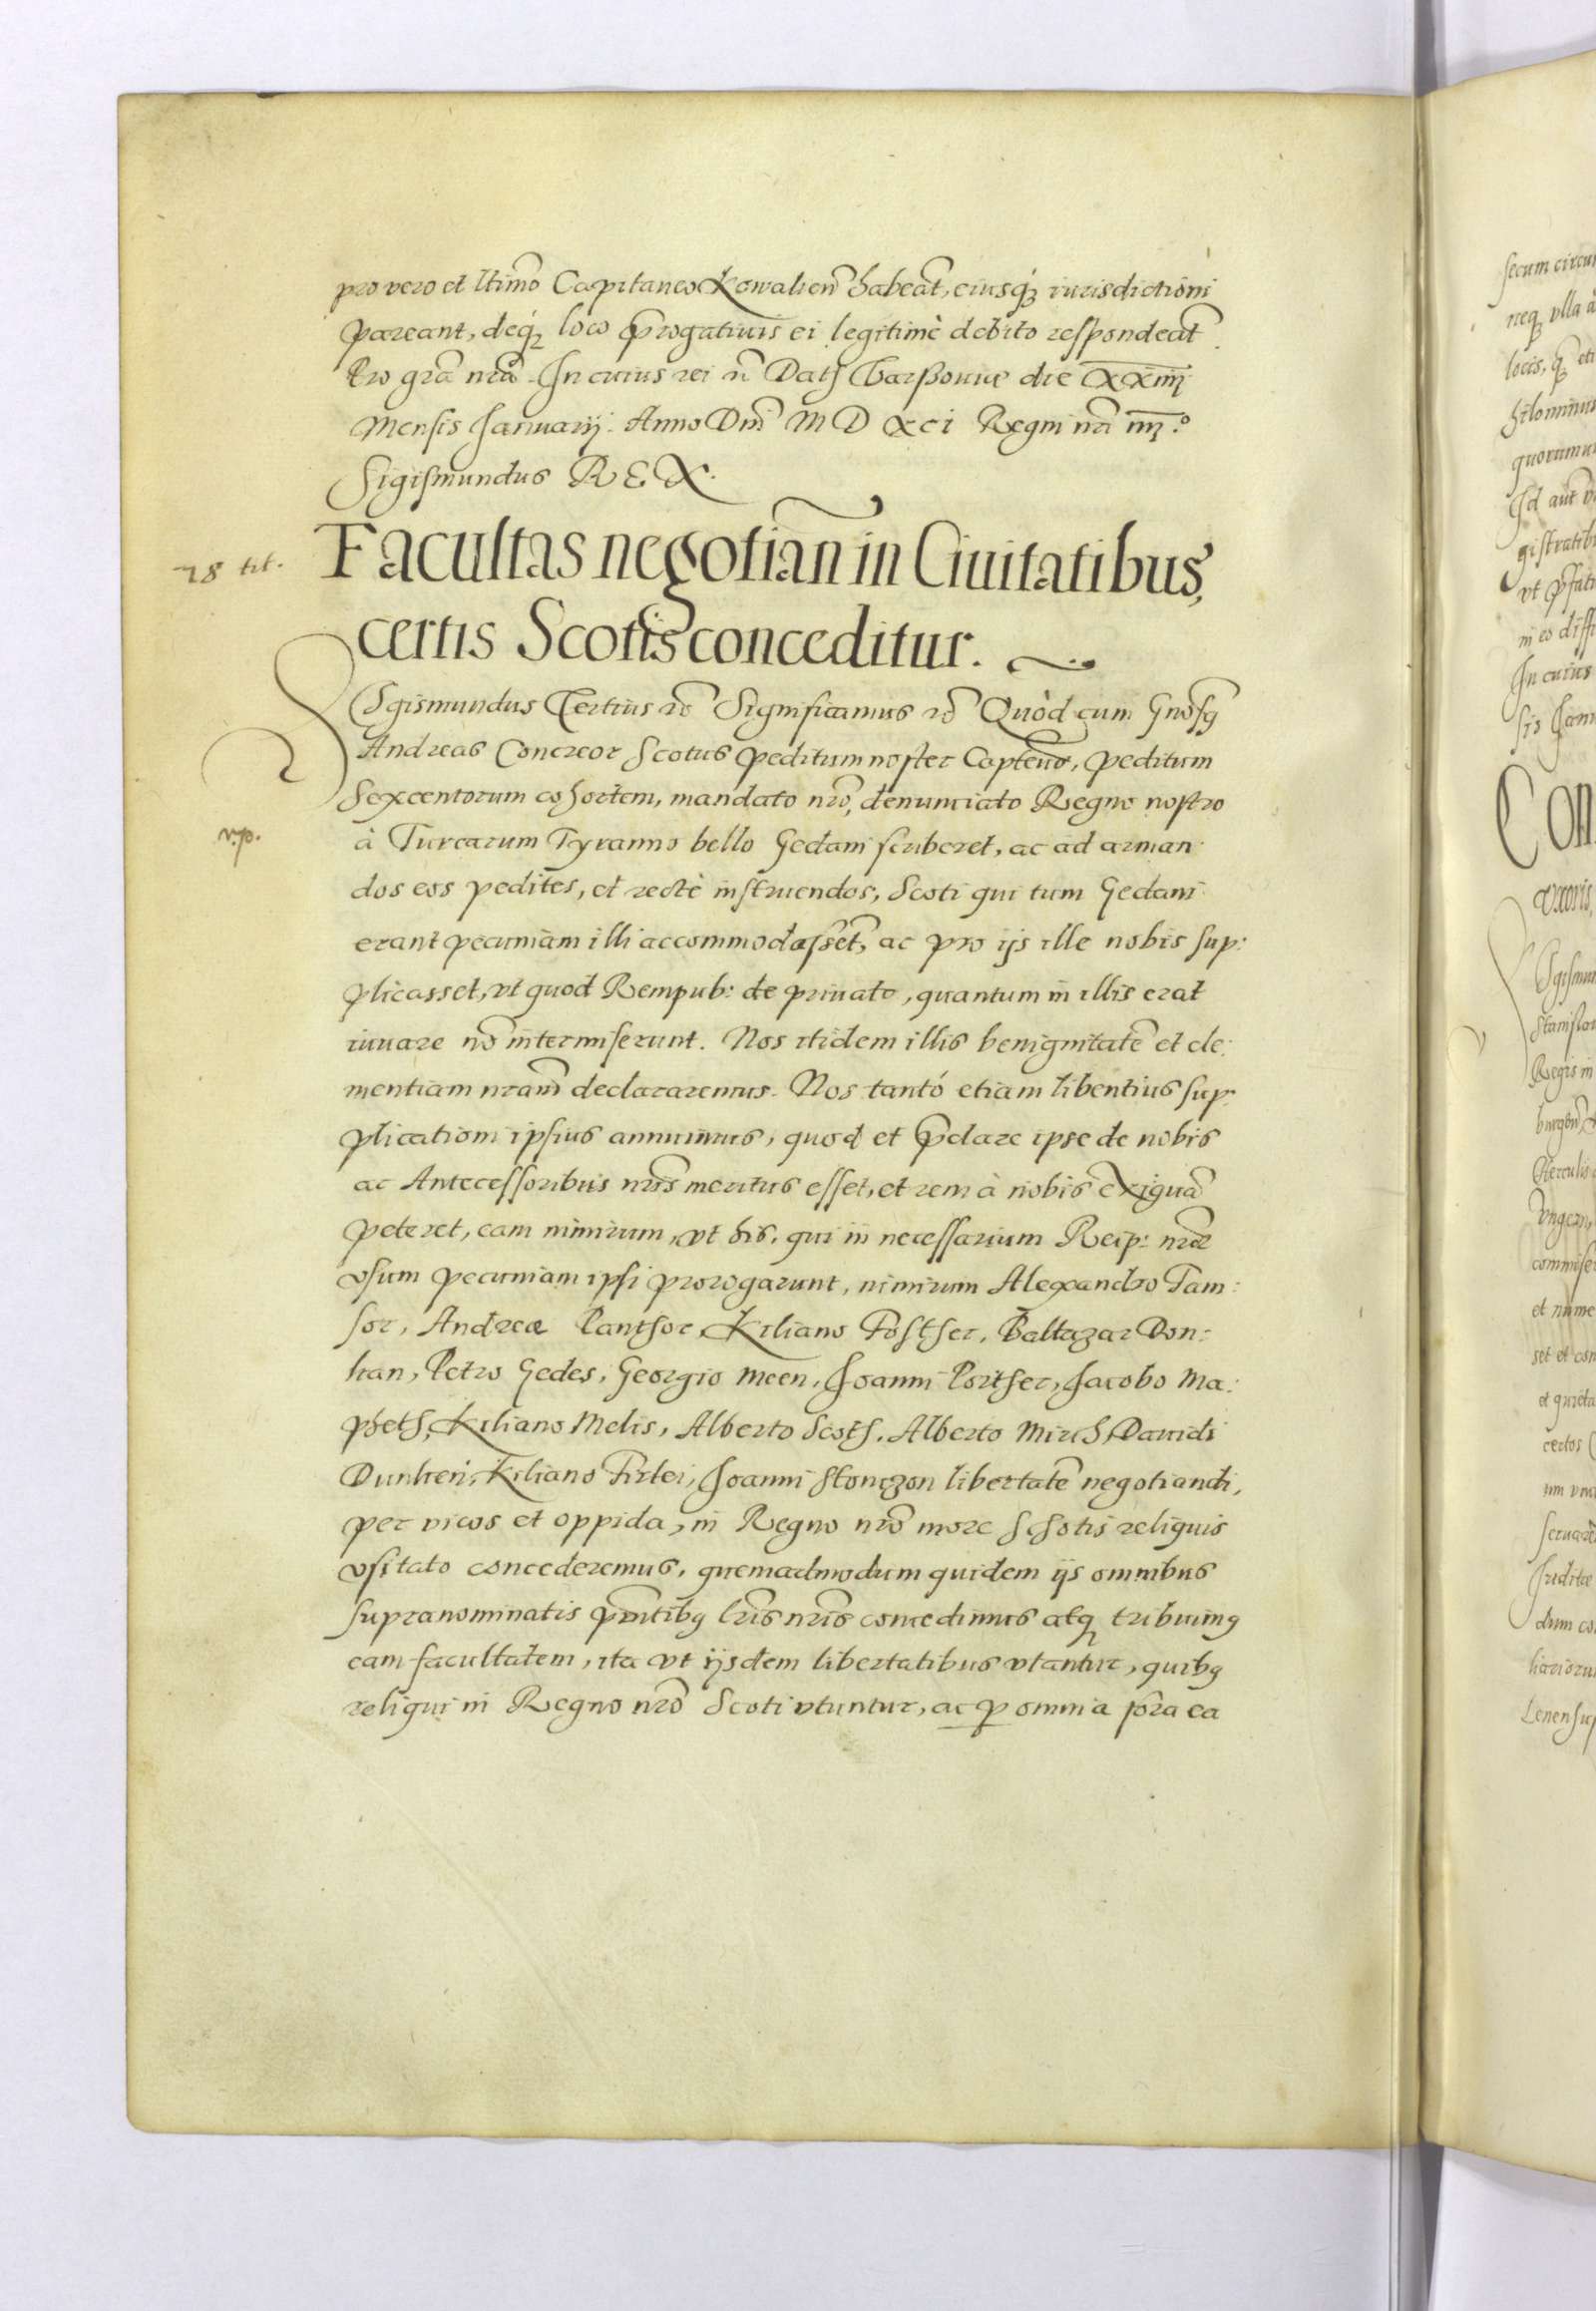 pro vero et ltimo Capitaneo Kowalien habeat, eiusq iurisdictioni
pareant, deq loco prorogatiuis ei legitimè debito respondeat
Pro gra nra. In cuius rei Dat Varßouiae die XXIIII
Mensis Januarij. Anno Dni M D XCI Regni nri IIII.º
Sigismundus REX.
28 tit.
Facultas negotian in Ciuitatibus,
certis Scotis conceditur.
Sigismundus Tertius rc Significamus rc Quòd cum Gnosq
Andreas Concreor Scotus peditum noster Capteus, peditum
Sexcentorum cohortem, mandato nro, denunciato Regno nostro
à Turcarum Tyranno bello Gedani scriberet, ac ad arman
dos eos pedites, et rectè instruendos, Scoti qui tum Gedani
erant pecuniam illi accommodasset, ac pro ijs ille nobis sup:
plicasset, vt quod Rempub: de priuato, quantum in illis erat
iuuare no intermiserunt. Nos itidem illis benignitate et cle:
mentiam nram declararemus. Nos tantó etiam libentius sup:
plicationi ipsius annuimus, quod et pclare ipse de nobis
ac Antecessoribus nris meritus esset, et rem à nobis exigua
peteret, eam nimirum, vt his, qui in necessarium Reip: nrae
vsum pecuniam ipsi prorogarunt, nimirum Alexandro Tam:
sor, Andreae Panthor, Kiliano Fostser, Baltazar Don:
han, Petro Gedes, Georgio Meen, Joanni Portser, Jacobo Ma:
pheth, Kiliano Melis, Alberto Scoth, Alberto Mirch, Dauidi
Dunhen, Kiliano Firlei, Joanni Stonczon libertate negotiandi,
per vicos et oppida, in Regno nro more Schotis reliquis
vsitato concederemus, quemadmodum quidem ijs omnibus
supranominatis pntibq lris nris concedimus atq tribuimq
eam facultatem, ita vt ijsdem libertatibus vtantur, quibq
reliqui in Regno nro Scoti vtuntur, ac p omnia fora ea